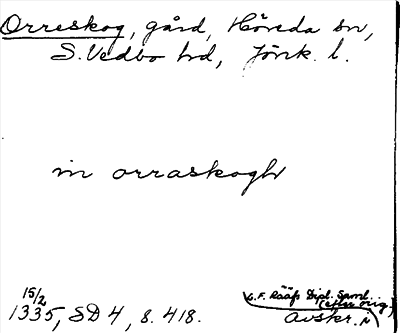 Orreskog, gård, Höreda sn,
S. Vedbo hd, Jönk. l.
in orraskogh
15/2
1335, SD 4, s. 418.
L. F. Rääfs Dipl. Saml.
(efter orig.)
avskr. i